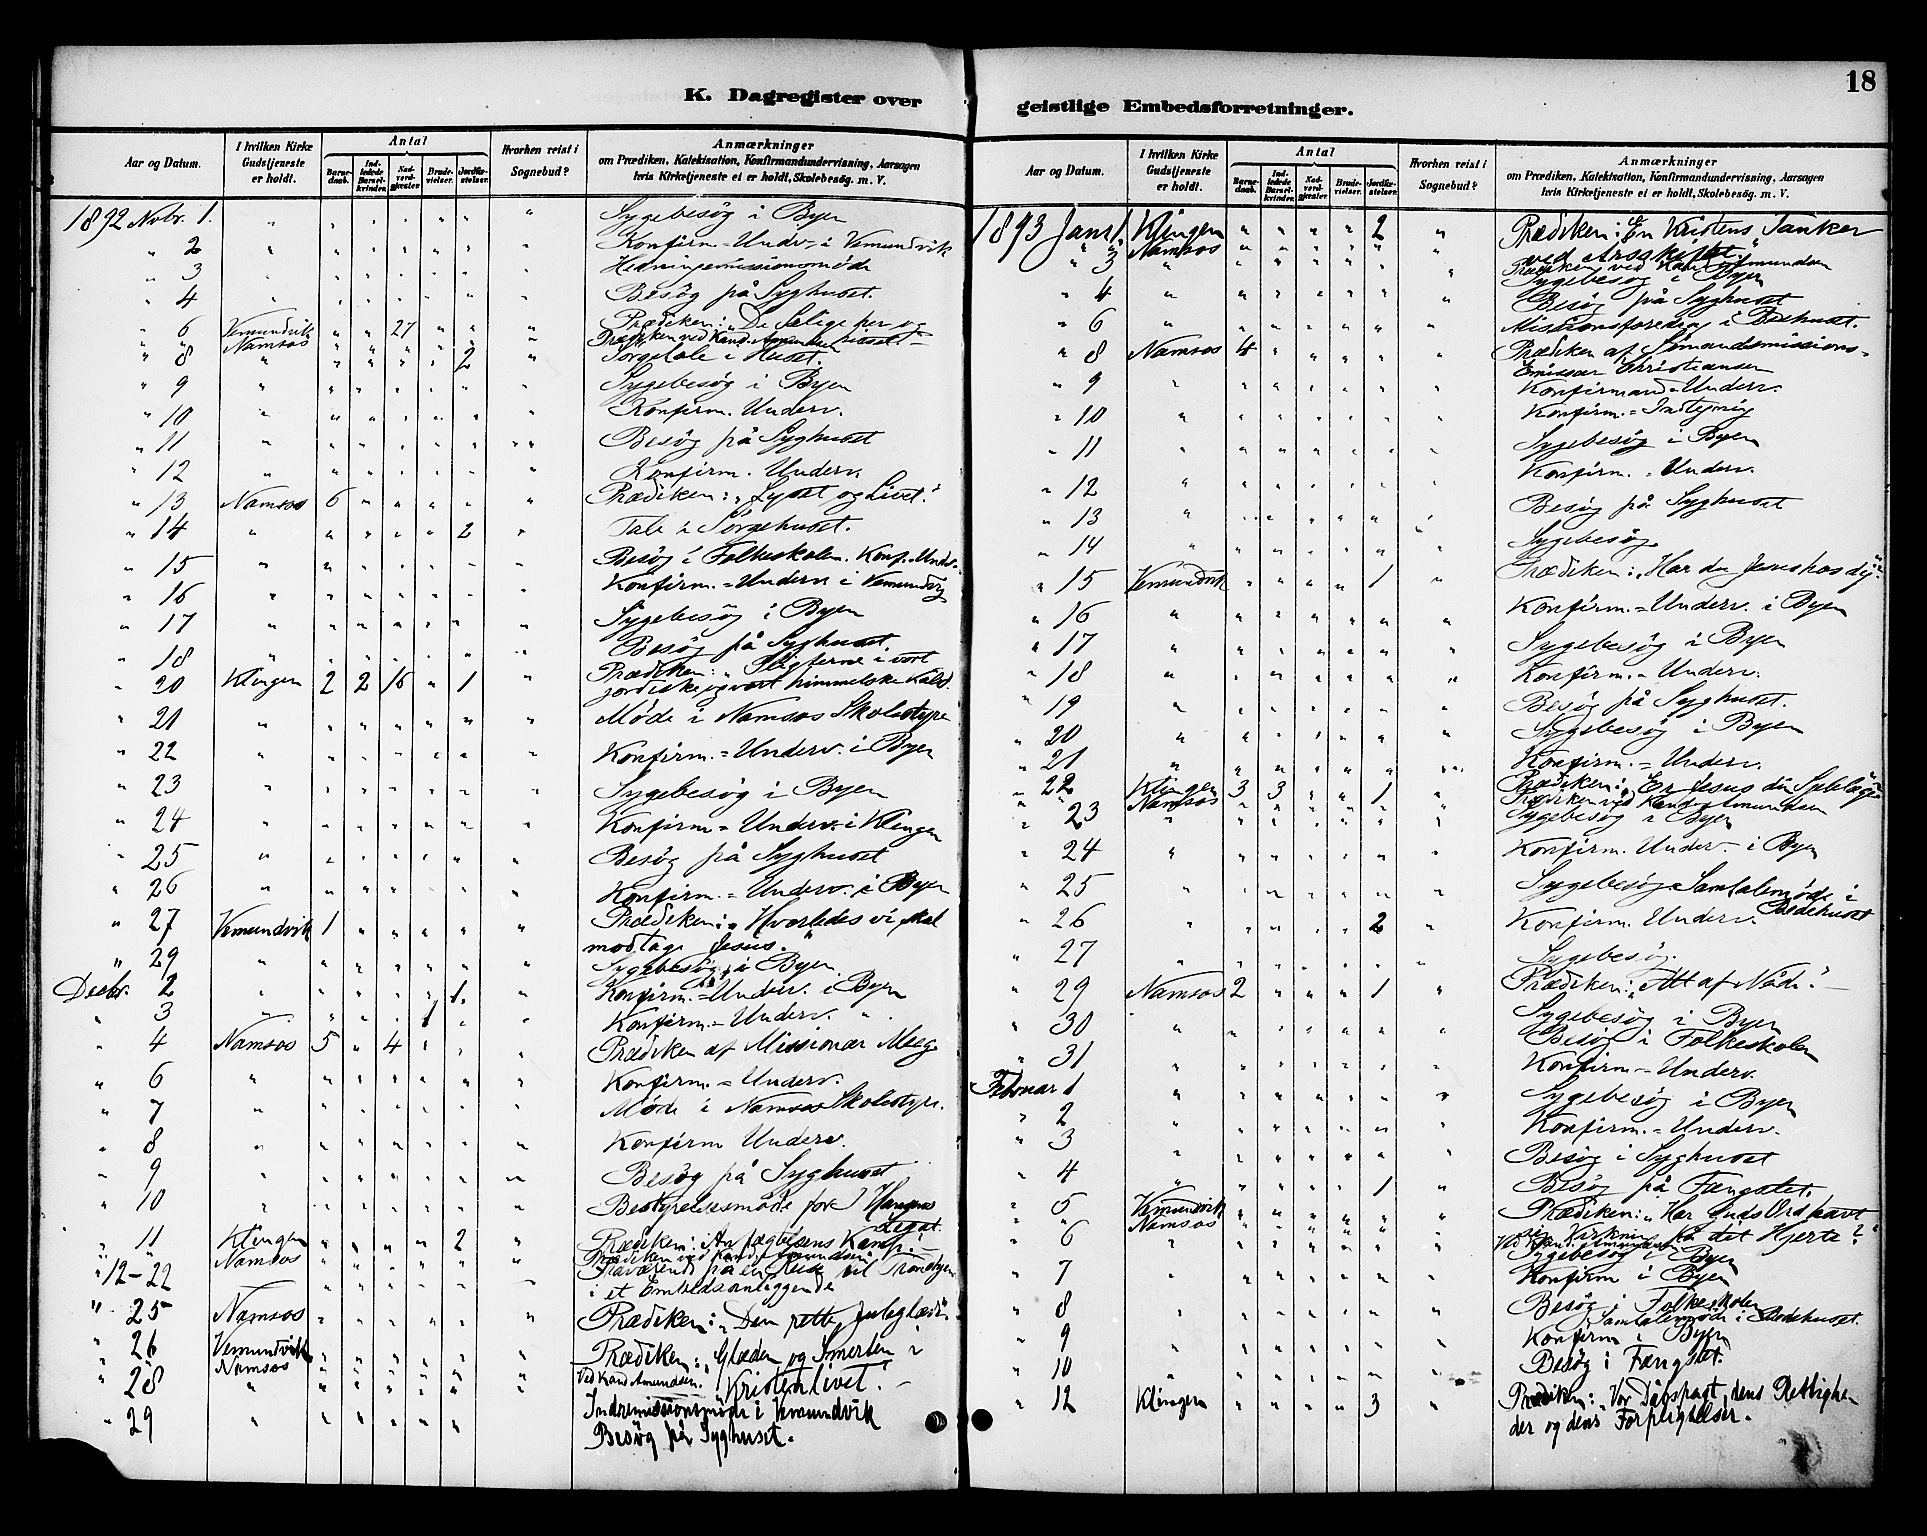 K. Dagregister over
Aar og Datum.
I hvilken Kirke Gudstjeneste er holdt.
Antal
Barnedaab.
Indledede Barselkvinder.
Nadverdgjester.
Brudevielser.
Jordfæstelser.
Hvorhen reist i Sognebud?
Anmærkninger
om Prædiken, Katekisation, Konfirmandundervisning, Aarsagen
hvis Kirketjeneste ei er holdt, Skolebesøg. m. V.
1892 Novbr. 1. Sygebesög i Byen
" 2 Konfirm.=Underv. i Vemundvik
" 3 Hedningemissionsmöde
" 4 Besög på Syghuset.
" 6 Vemundvik 27 Prædiken: "De Salige her og
" " Namsos Prædiken ved Kand. Amundsen
" 8 2 Sørgetale i Huset.
" 9 Sygebesög i Byen
" 10 Konfirm. Underv.
" 11 Besög på Syghuset
" 12 Konfirm. Underv.
" 13 Namsos 6 Prædiken: "Lyset og Livet."
" 14 2 Tale i Sörgehuset.
" 15 Besög i Folkeskolen. Konf. Underv.
" 16 Konfirm.=Underv i Vemundvig
" 17 Sygebesög i Byen
" 18 Besög på Syghuset.
" 20 Klingen 2 2 16 1 Prædiken: " i vort
jordiske og vort himmelske Kald.
" 21 Möde i Namsos Skolestyre
" 22 Konfirm.=Underv. i Byen
" 23 Sygebesög i Byen
" 24 Konfirm=Underv. i Klingen
" 25 Besög på Syghuset
" 26 Konfirm.=Underv. i Byen
" 27 Vemundvik 1 Prædiken: "Hvorledes vi skal
modtage Jesus."
" 29 Sygebesög i Byen.
Decbr. 2 1. Konfirm.=Underv. i Byen
" 3 1 Konfirm.=Underv. "
" 4 Namsos 5 4 Prædiken af Missionær
" 6 Konfirm.=Underv.
" 7 Möde i Namsos Skolestyre.
" 8 Konfirm Underv.
" 9 Besög på Syghuset
" 10 Bestyrelsesmöde for
Legat.
" 11 Klingen 2 Prædiken: Anfægtelsens Kamp
" " Namsos Prædiken ved Kand. Amundsen
" 12-22 Fraværende på en Reise til Trondhjem
i et Embedsanliggende
" 25 Namsos Prædiken: "Den rette Juleglæde."
" 26 Vemundvik Prædiken: "Glæden og Smerten i
" " Namsos Ved Kand Amundsen. Kristenlivet."
" 28 Indremissionsmöde i Vemundvik
" 29 Besög på Syghuset.
geistlige Embedsforretninger.
18
Aar og Datum.
I hvilken Kirke Gudstjeneste er holdt.
Antal
Barnedaab.
Indledede Barselkvinder.
Nadverdgjester.
Brudevielser.
Jordfæstelser.
Hvorhen reist i Sognebud?
Anmærkninger
om Prædiken, Katekisation, Konfirmandundervisning, Aarsagen
hvis Kirketjeneste ei er holdt, Skolebesøg. m. V.
1893 Jan. 1. Klingen 2 Prædiken: "En Kristens Tanker
ved Årsskiftet."
" " Namsos Prædiken ved Kand Amundsen
" 3 Sygebesög i Byen
" 4 Besög på Syghuset
" 6 Missionsforedrag i Bedehuset.
" 8 Namsos 4 Prædiken af Sömandsmissions=
Emissær Christiansen
" 9 Konfirmand=Underv.
" 10 Konfirm.=
" 11 Sygebesög i Byen
" 12 Konfirm.=Underv.
" 13 Besög på Syghuset
" 14 Sygebesög.
" 15 Vemundvik 1 Prædiken: "Har du Jesus hos dig?"
" 16 Konfirm.=Underv. i Byen
" 17 Sygebesög i Byen
" 18 Konfirm.=Underv.
" 19 Besög på Syghuset.
" 20 Sygebesög i Byen
" 21 Konfirm.=Underv.
" 22 Klingen 3 3 1 Prædiken: "Er Jesus din
" " Namsos Prædiken ved Kand. Amundsen
" 23 Sygebesög i Byen
" 24 Konfirm. Underv. i Byen
" 25 Sygebesög. Samtalemöde i
Bedehuset
" 26 2 Konfirm. Underv.
" 27 Sygebesög.
" 29 Namsos 2 1 Prædiken: "Alt af Nåde."
" 30 Sygebesög i Byen
" 31 Besög i Folkeskolen
Konfirm=Underv.
Februar 1 Sygebesög i Byen
" 2 Konfirm.=Underv.
" 3 Besög i Syghuset
" 4 1 Besög på Fængslet.
" 5 Vemundvik Prædiken: "Har Guds Ord havt
sin Virkning på dit Hjerte?"
" " Namsos Ved Kand. Amundsen
" 6 Sygebesög i Byen
" 7 Konfirm i Byen
" 8 Besög i Folkeskolen
Samtalemöde i Bedehuset.
" 9 Konfirm i Byen
" 10 Besög i Fængslet.
" 12 Klingen 3 Prædiken: "Vor Dåbspagt, dens Rettighe
der og dens Forpligtelser.